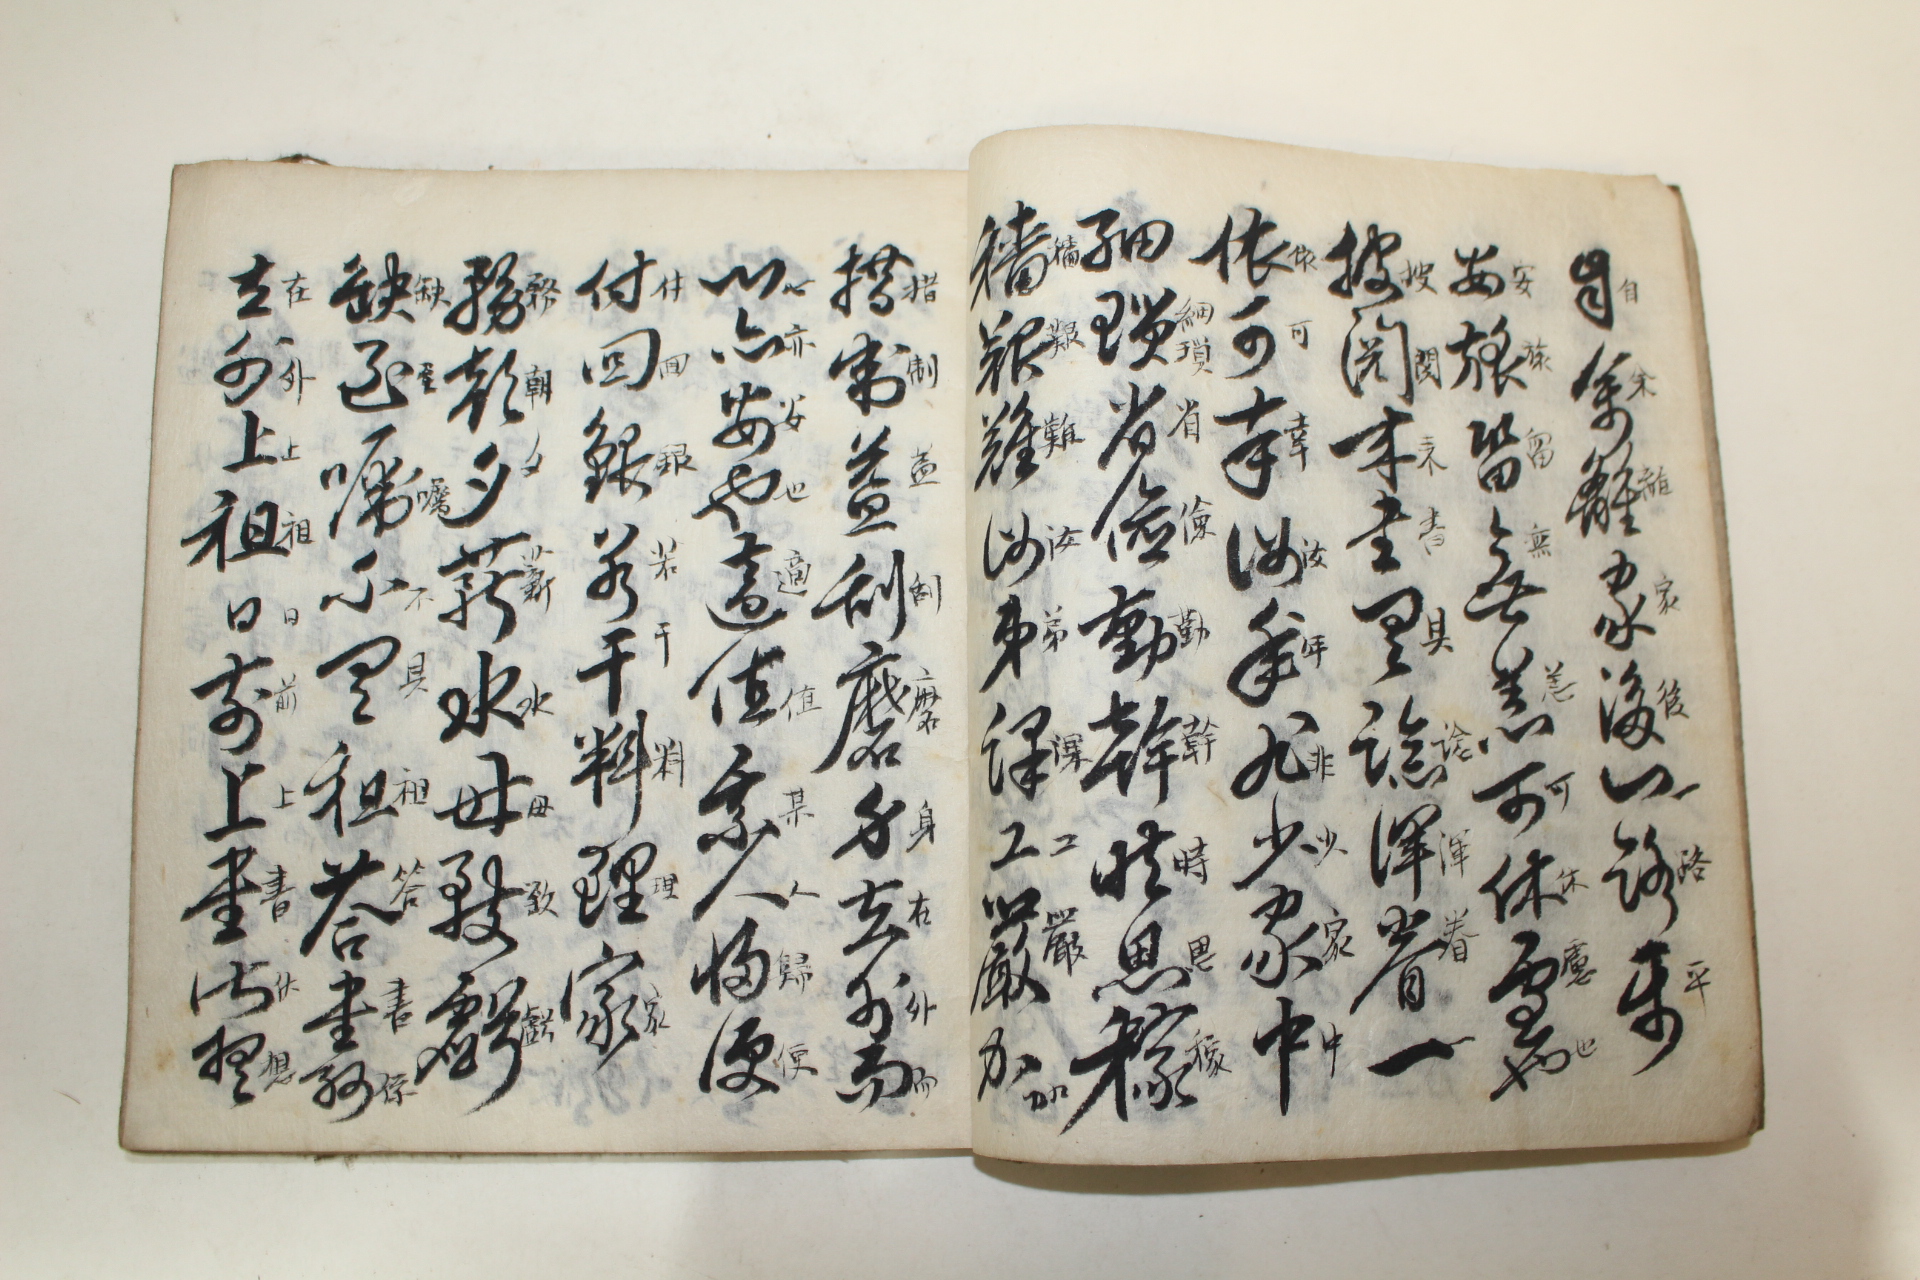 自余離家後一路平
安旅留無恙可休慮也
披閱來書具諗渾眷一
依可幸汝年非少家中
細瑣省儉勤幹時思稼
穡艱難汝弟課工嚴加
措制益刮磨身在外而
心亦安也適值某人歸便
付回銀若干料理家
務朝夕薪水毋致虧
缺至囑不具祖答書孫
在外上祖日前上書伏想